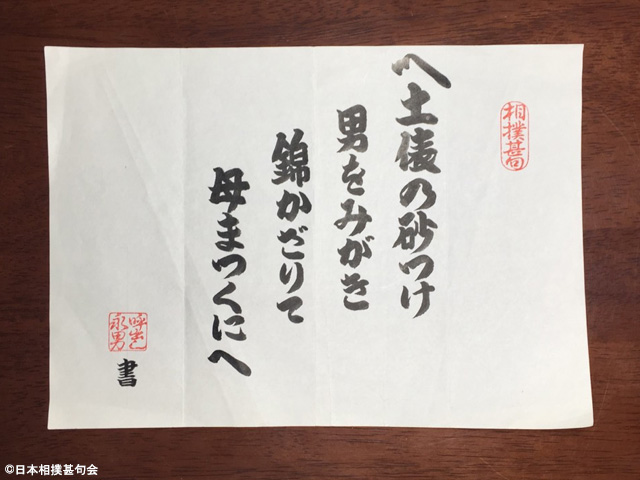 相撲甚句
〽土俵の砂つけ
男をみがき
錦かざりて
母まつくにへ
呼出し
永男
書
©日本相撲甚句会